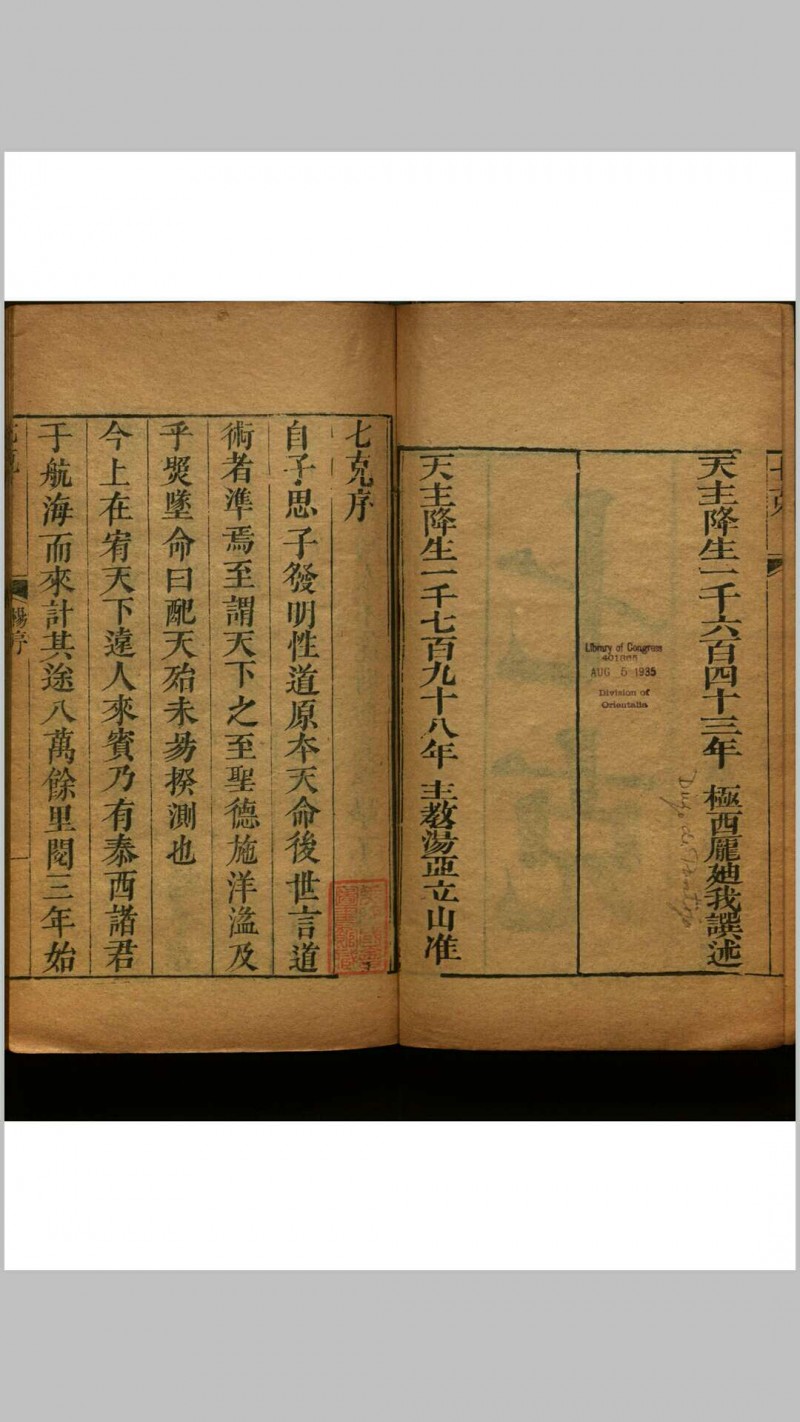 天主降生一千六百四十三年 極西龐廸我譔述
Library of Congress
AUG 5 1935
Division of
Orientalia
天主降生一千七百九十八年 主教湯亞立山准
七克序
自子思子發明性道原本天命後世言道
術者準焉至謂天下之至聖德施洋溢及
乎煛墜命曰配天殆未易揆測也
今上在宥天下遠人來賓乃有泰西諸君
于航海而來計其途八萬餘里閱三年始